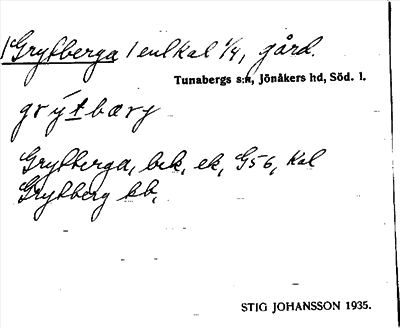 1 Grytberga 1 enl kal 1/4, gård.
Tunabergs s:n, Jönåkers hd, Söd. l.
grýtbærj
Grytberga, bek, ek, G56, kal
Grytberg kb,
STIG JOHANSSON 1935.